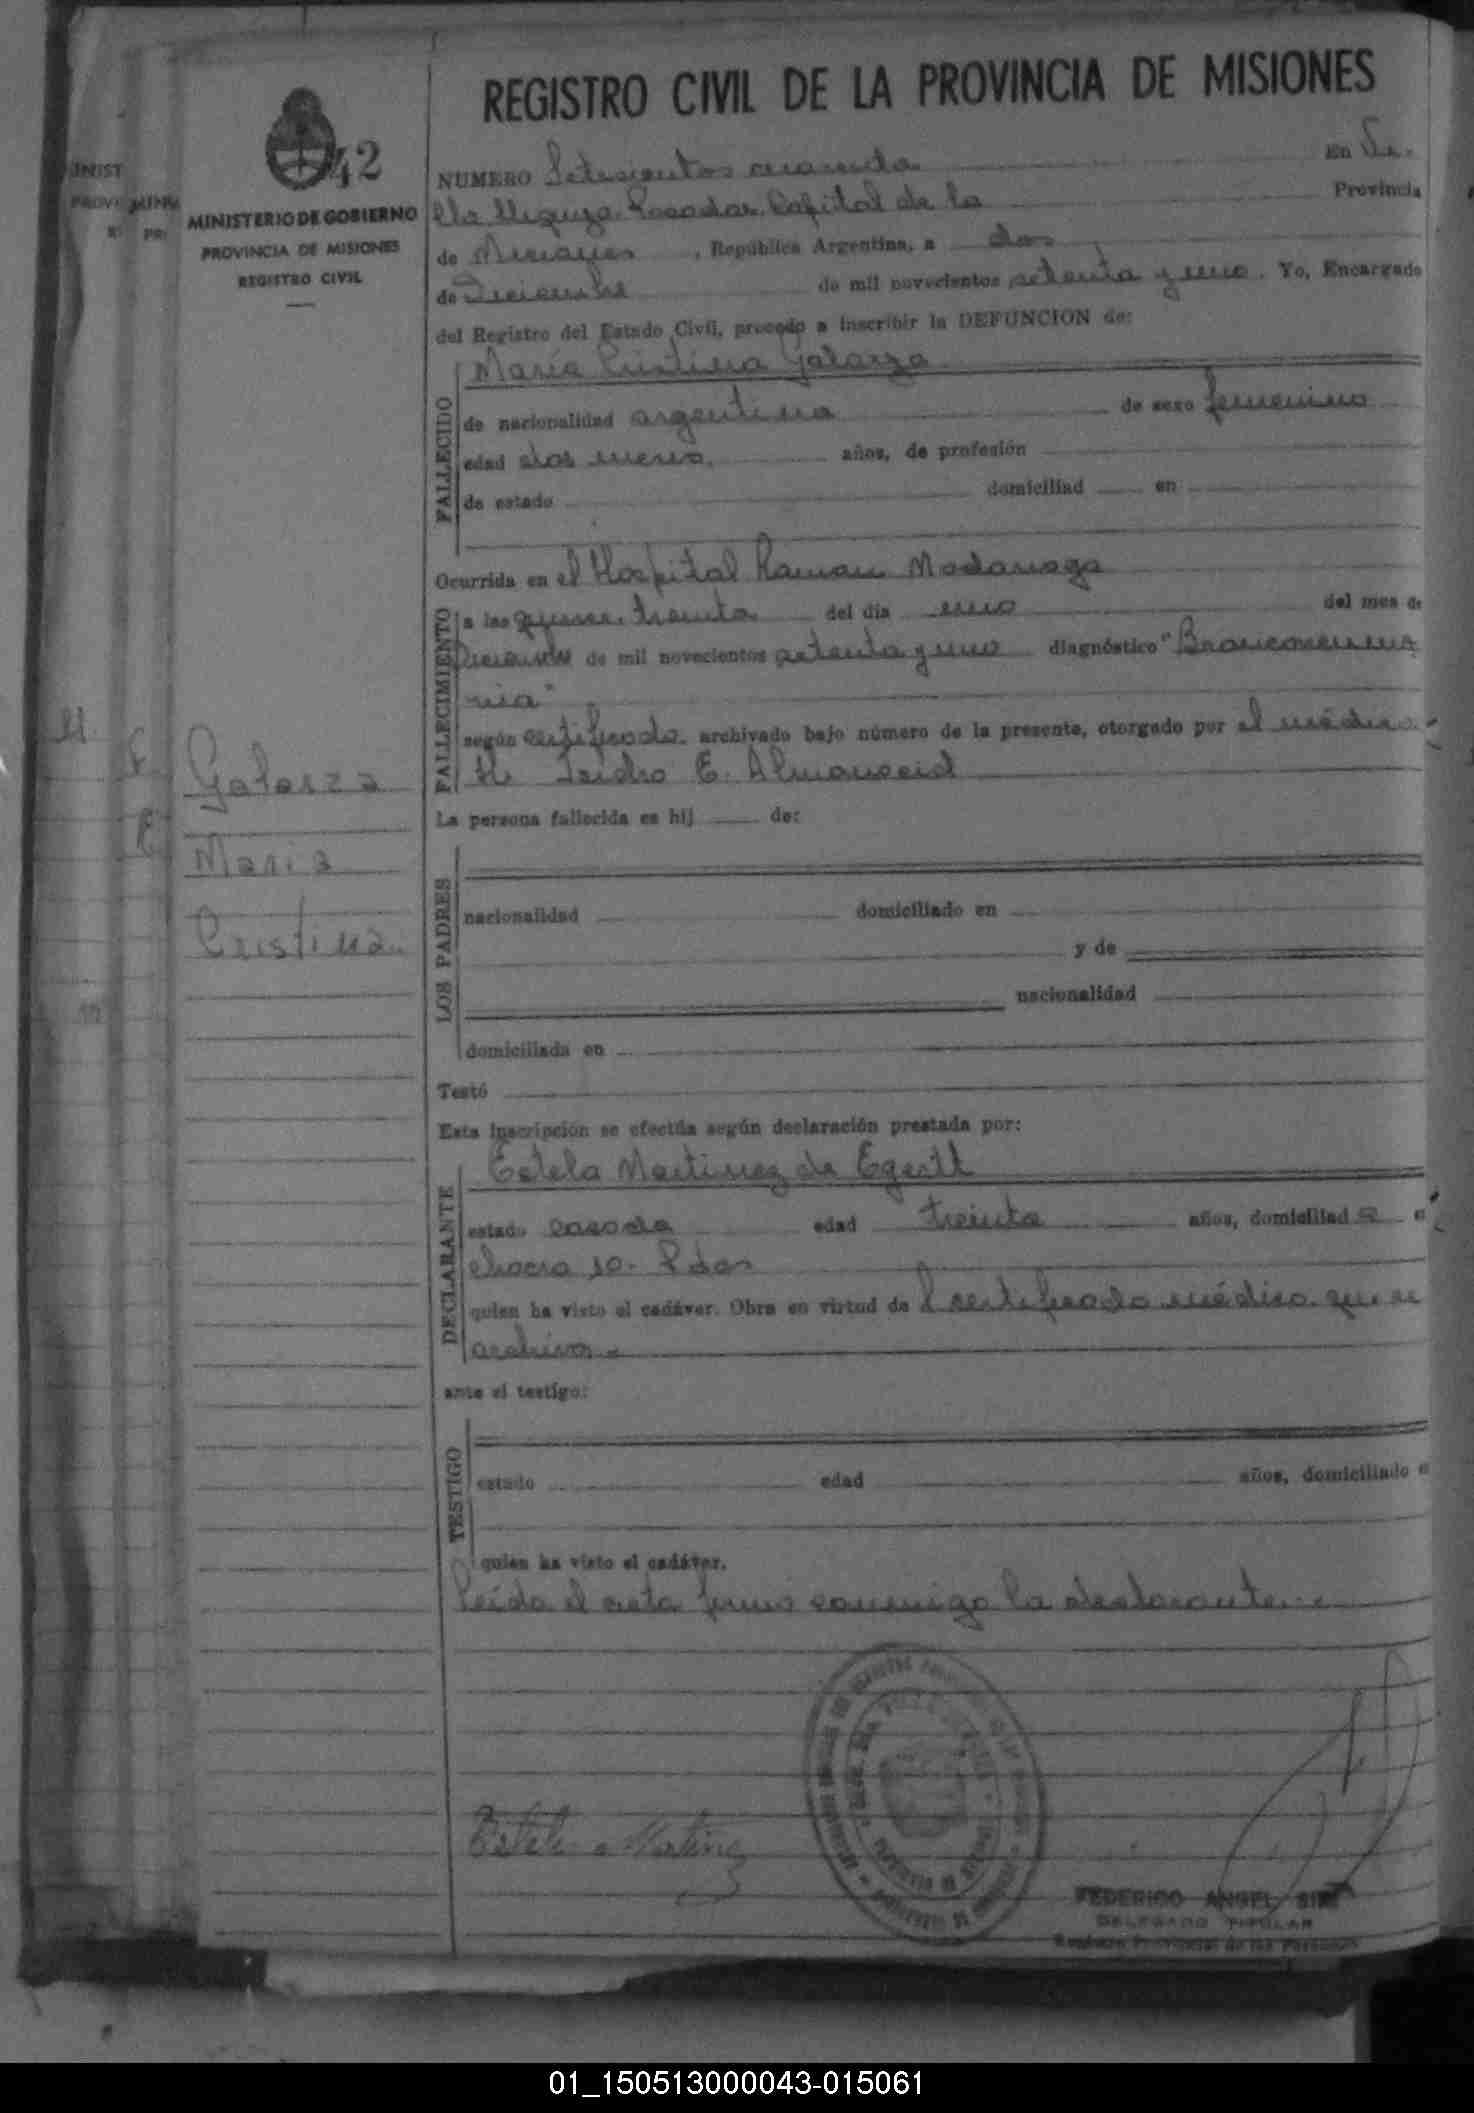 REGISTRO CIVIL DE LA PROVINCIA DE MISIONES
42
MINISTERIO DE GOBIERNO
PROVINCIA DE MISIONES
REGISTRO CIVIL
NUMERO Setecientos cuarenta En
Posadas, Capital de la Provincia
de Misiones, República Argentina, a dos
de Diciembre de mil novecientos setenta y uno. Yo, Encargado
del Registro del Estado Civil, procedo a inscribir la DEFUNCION de:
María Cristina Galarza
FALLECIDO
de nacionalidad argentina de sexo femenino
edad dos meses, años, de profesión
de estado domiciliad en
Ocurrida en el Hospital Ramon Madariaga
FALLECIMIENTO
a las quince, treinta del día uno del mes de
Diciembre de mil novecientos setenta y uno diagnóstico "Bronconeumo
nia"
según certificado archivado bajo número de la presente, otorgado por el médico
Isidro E. Almanocid
La persona fallecida es hij de:
Galarza
Maria
Cristina
LOS PADRES
nacionalidad domiciliado en
y de
nacionalidad
domiciliada en
Testó
Esta inscripción se efectúa según declaración prestada por:
Estela Martinez de Egertt
DECLARANTE
estado casada edad treinta años, domiciliad a
chacra 10. Pdas
quien ha visto el cadáver. Obra en virtud de l certificado médico que se
archiva.
ante el testigo:
TESTIGO
estado edad años, domiciliado
quien ha visto el cadáver.
Leída el acta firma conmigo la declarante.
Estela Martinez
FEDERICO ANGEL
DELEGADO TITULAR
Registro Provincial de las Personas
01_150513000043-015061